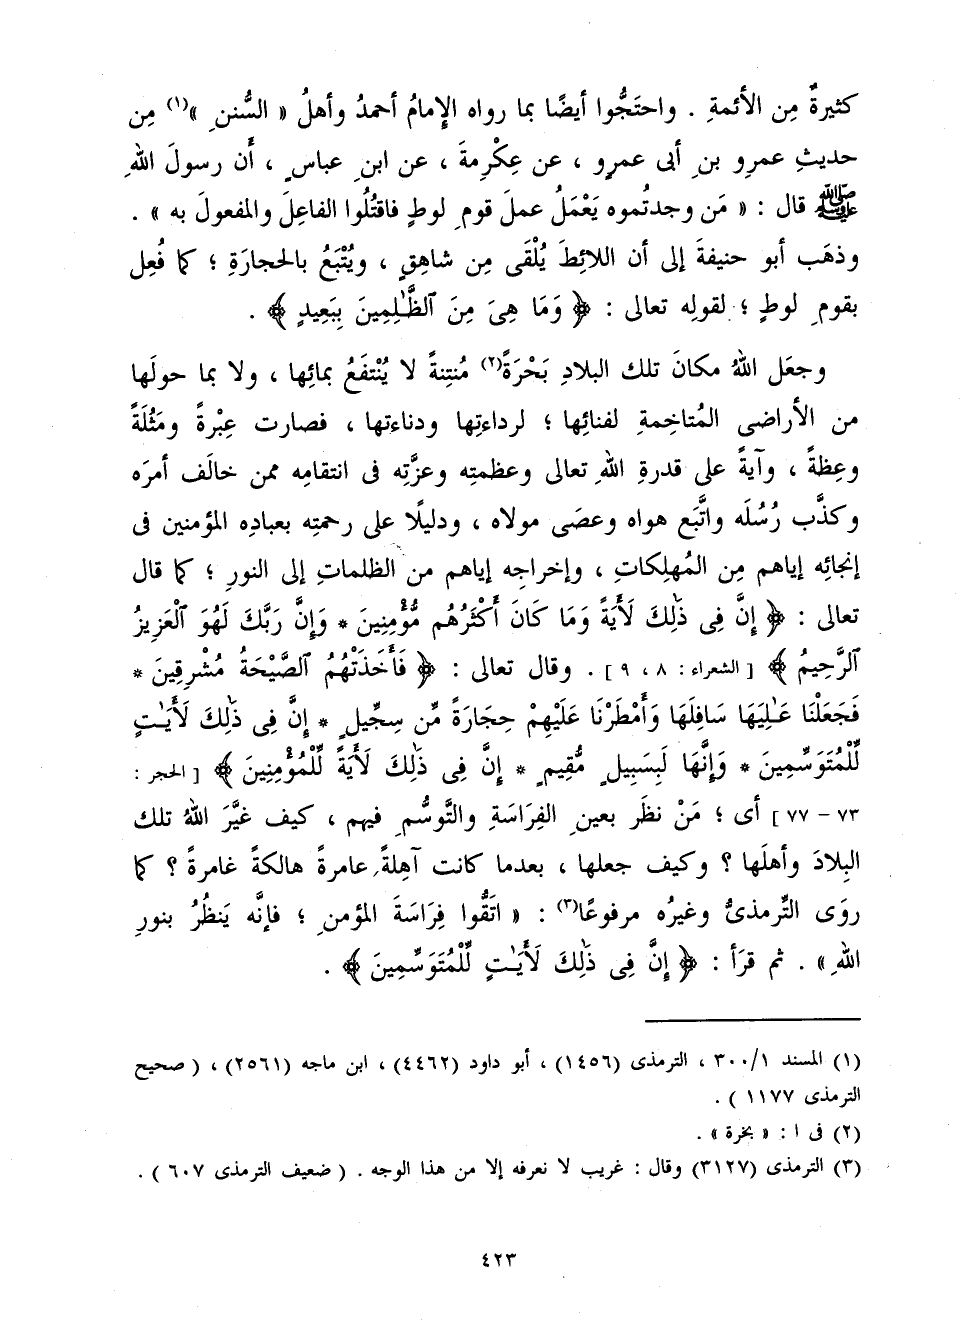 كثيرةٌ مِن الأئمةِ . واحتَجُّوا أيضًا بما رواه الإمامُ أحمدُ وأهلُ « السُّننِ »(١) مِن
حديثِ عمرِو بنِ أبى عمرٍو ، عن عِكْرِمةَ ، عن ابنِ عباسٍ ، أن رسولَ اللهِ
ﷺ قال : « مَن وجدتُموه يَعْمَلُ عملَ قومِ لوطٍ فاقتُلُوا الفاعِلَ والمفعولَ به » .
وذهَب أبو حنيفةَ إلى أن اللائِطَ يُلْقَى مِن شاهِقٍ ، ويُتْبَعُ بالحجارَةِ ؛ كما فُعِل
بقومِ لوطٍ ؛ لقولِه تعالى : ﴿ وَمَا هِىَ مِنَ ٱلظَّٰلِمِينَ بِبَعِيدٍ ﴾ .
وجعَل اللهُ مكانَ تلك البلادِ بَحْرَةً(٢) مُنتِنةً لا يُنْتفَعُ بمائِها ، ولا بما حولَها
من الأراضى المُتاخِمةِ لفنائِها ؛ لرداءتِها ودناءتِها ، فصارت عِبْرةً ومَثُلَةً
وعِظةً ، وآيةً على قدرةِ اللهِ تعالى وعظمتِه وعزَّتِه فى انتقامِه ممن خالَف أمرَه
وكذَّب رُسُلَه واتَّبَع هواه وعصَى مولاه ، ودليلًا على رحمتِه بعبادِه المؤمنين فى
إنجائِه إياهم مِن المُهلِكاتِ ، وإخراجِه إياهم من الظلماتِ إلى النورِ ؛ كما قال
تعالى : ﴿ إِنَّ فِى ذَٰلِكَ لَأَيَةً وَمَا كَانَ أَكْثَرُهُم مُّؤْمِنِينَ * وَإِنَّ رَبَّكَ لَهُوَ ٱلْعَزِيزُ
ٱلرَّحِيمُ ﴾ [ الشعراء : ٨ ، ٩ ] . وقال تعالى : ﴿ فَأَخَذَتْهُمُ ٱلصَّيْحَةُ مُشْرِقِينَ *
فَجَعَلْنَا عَٰلِيَهَا سَافِلَهَا وَأَمْطَرْنَا عَلَيْهِمْ حِجَارَةً مِّن سِجِّيلٍ * إِنَّ فِى ذَٰلِكَ لَأَيَٰتٍ
لِّلْمُتَوَسِّمِينَ * وَإِنَّهَا لَبِسَبِيلٍ مُّقِيمٍ * إِنَّ فِى ذَٰلِكَ لَأَيَةً لِّلْمُؤْمِنِينَ ﴾ [ الحجر :
٧٣ - ٧٧ ] أى ؛ مَنْ نظَر بعينِ الفِرَاسَةِ والتَّوسُّمِ فيهم ، كيف غيَّرَ اللهُ تلك
البِلادَ وأهلَها ؟ وكيف جعلها ، بعدما كانت آهِلةً عامرةً هالكةً غامرةً ؟ كما
روَى التِّرمذىُّ وغيرُه مرفوعًا(٣) : « اتَقُّوا فِرَاسَةَ المؤمنِ ؛ فإنَّه يَنظُرُ بنورِ
اللهِ » . ثم قرَأ : ﴿ إِنَّ فِى ذَٰلِكَ لَأَيَٰتٍ لِّلْمُتَوَسِّمِينَ ﴾ .
(١) المسند ٣٠٠/١ ، الترمذى (١٤٥٦) ، أبو داود (٤٤٦٢) ، ابن ماجه (٢٥٦١) ، ( صحيح
الترمذى ١١٧٧ ) .
(٢) فى ا : « بخرة » .
(٣) الترمذى (٣١٢٧) وقال : غريب لا نعرفه إلا من هذا الوجه . ( ضعيف الترمذى ٦٠٧ ) .
٤٢٣